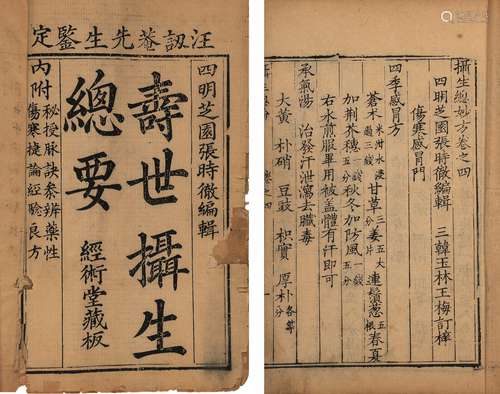 汪訒菴先生鑒定
四明芝園張時徹編輯
壽世攝生
總要
經術堂藏板
內附
秘授脉訣参辨藥性
傷寒捷論經驗良方
攝生總妙方卷之四
四明芝園張時徹編輯 三韓玉林王梅訂梓
傷寒感冒門
四季感冒方
蒼术米泔水浸過三錢 甘草三分 姜五大片 連鬚葱五根 春夏
加荆芥穗一錢五分 秋冬加防風一錢五分
右水煎服畢用被蓋體有汗即可
承氣湯 治發汗泄瀉去臟毒
大黄 朴硝 豆豉 枳實 厚朴各等分